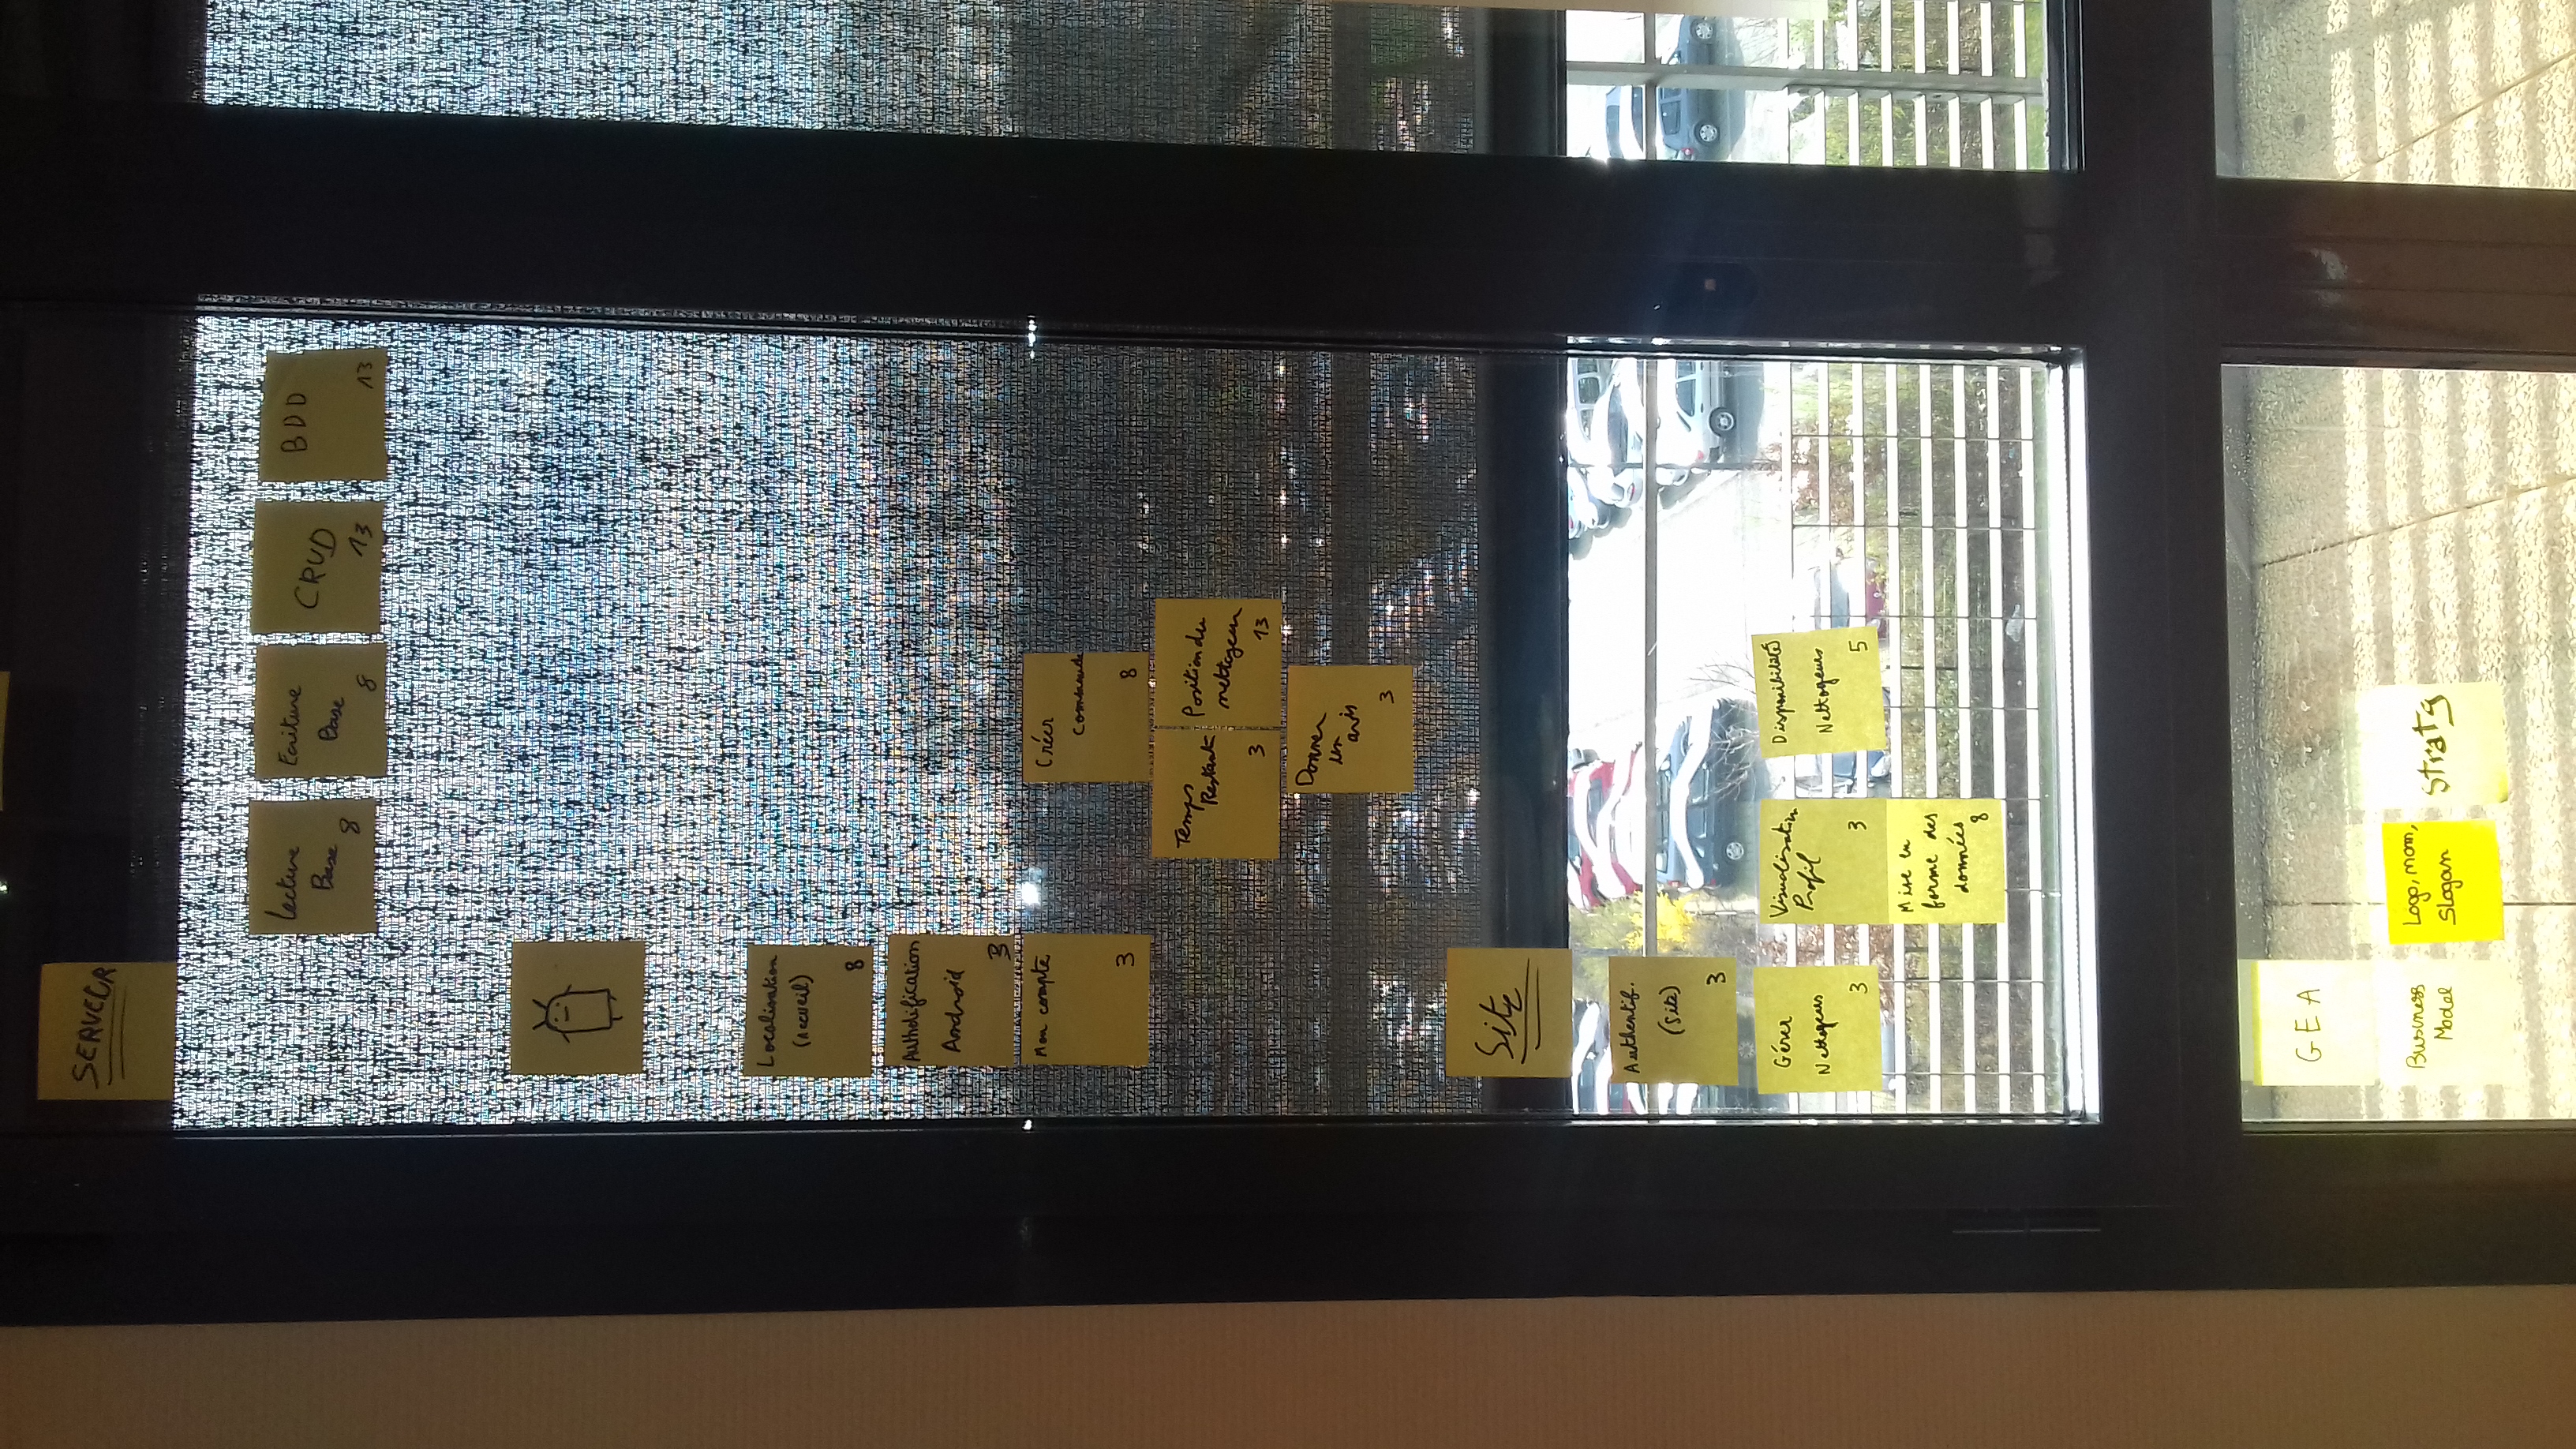 SERVEUR
Lecture
Base
8
Ecriture
Base
8
CRUD
13
BDD
13
Localisation
(Accueil)
8
Authetification
Android
3
Mon compte
3
Créer
Commande
8
Temps
Restant
3
Position du
nettoyeur
13
Donner
un
avis
3
Site
Authentif.
(Site)
3
Gérer
Nettoyeurs
3
Visualisation
Profil
3
Disponibilité
Nettoyeurs
5
Mise en
forme des
données
8
GEA
Business
Model
Logo, nom,
Slogan
Stratg